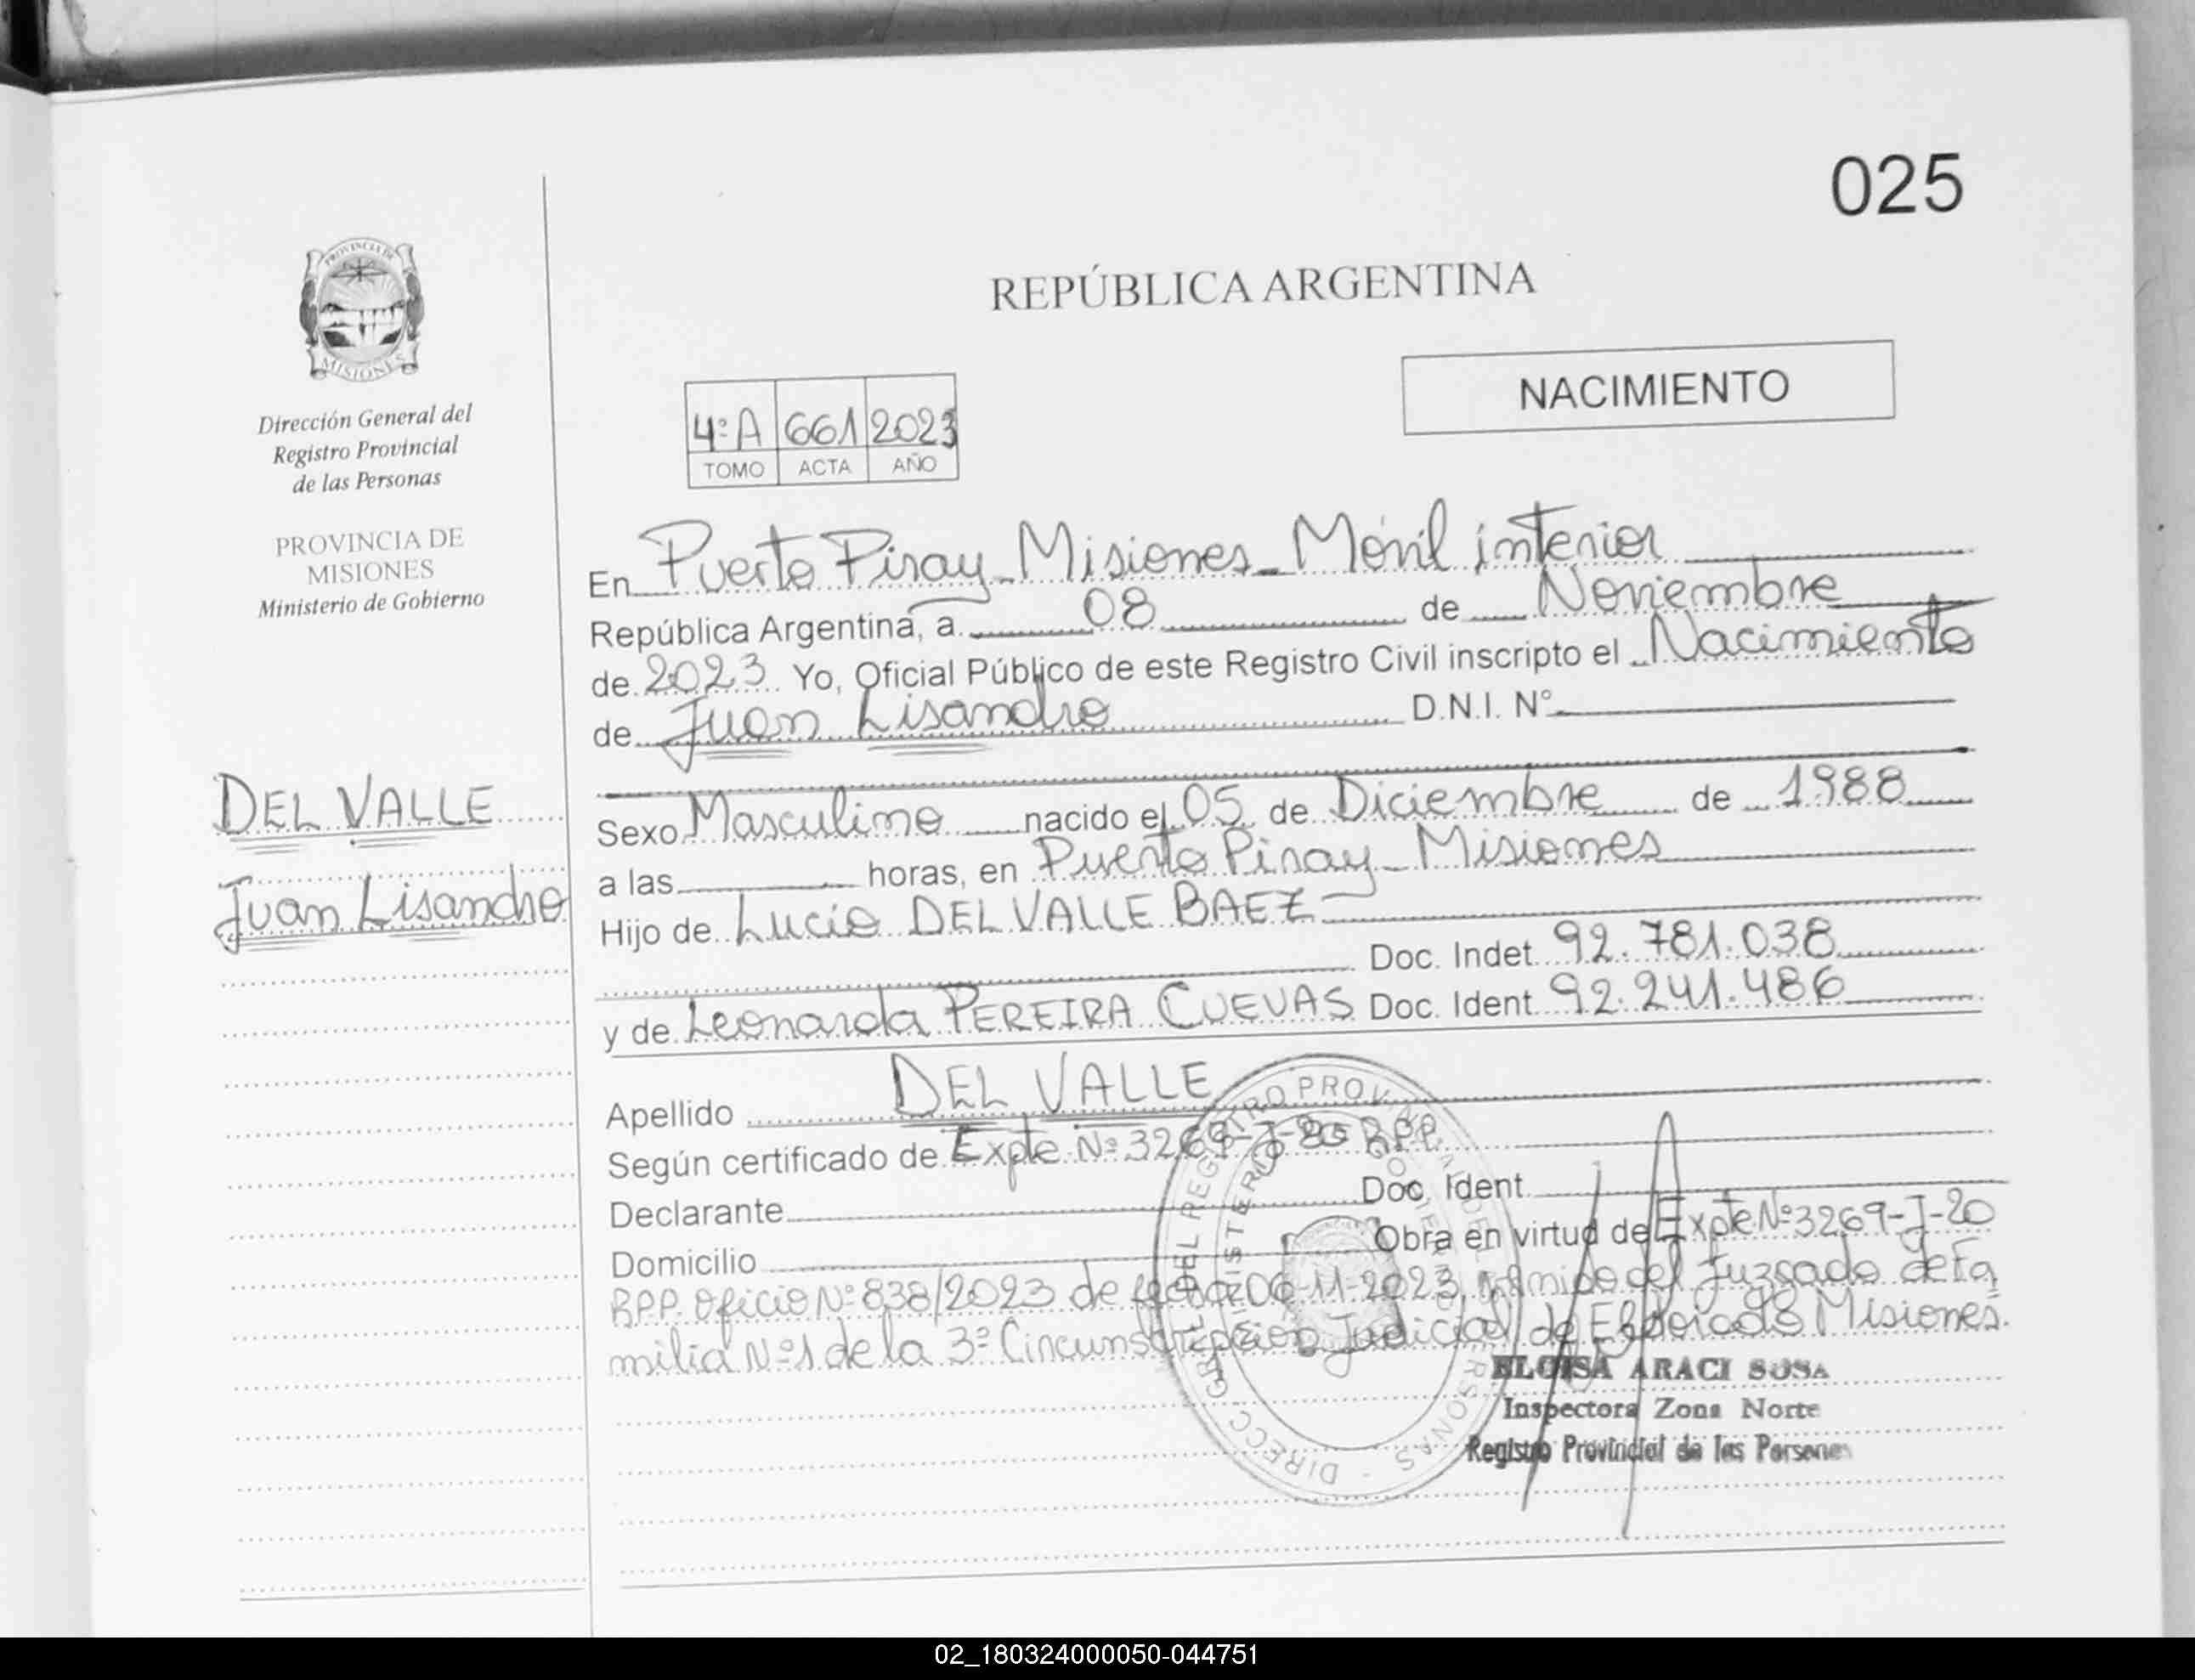 025
REPÚBLICA ARGENTINA
NACIMIENTO
PROVINCIA DE
MISIONES
Dirección General del
Registro Provincial
de las Personas
PROVINCIA DE
MISIONES
Ministerio de Gobierno
4º A 661 2023
TOMO ACTA AÑO
En Puerto Piray - Misiones - Móvil interior
República Argentina, a 08 de Noviembre
de 2023 Yo, Oficial Público de este Registro Civil inscripto el Nacimiento
de Juan Lisandro D.N.I. Nº
DEL VALLE
Juan Lisandro
Sexo Masculino nacido el 05 de Diciembre de 1988
a las horas, en Puerto Piray - Misiones
Hijo de Lucio DEL VALLE BAEZ
Doc. Indet. 92.781.038
y de Leonarda PEREIRA CUEVAS Doc. Ident. 92.241.486
Apellido DEL VALLE
Según certificado de Expte Nº 3269-J-20 RPP.
Declarante Doc. Ident.
Domicilio Obra en virtud del Expte Nº 3269-J-20
RPP. Oficio Nº 838/2023 de fecha 06-11-2023, remido del Juzgado de Fa
milia Nº1 de la 3ª Circunscripcion Judicial de Eldorado Misiones.
ELOISA ARACI SOSA
Inspectora Zona Norte
Registro Provincial de las Personas
02_180324000050-044751